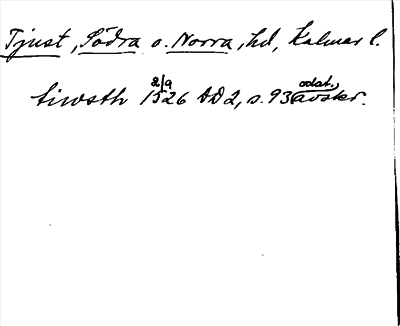 Tjust, Södra o. Norra, hd, Kalmar l.
tiwsth 1526 2/9 DD 2, s. 93 odat., avskr.